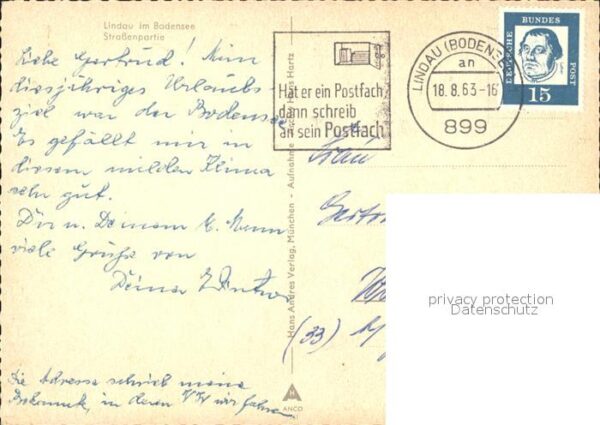 Lindau im Bodensee
Straßenpartie
Liebe Gertrud! Mein
diesjähriges Urlaubs-
ziel war der Bodensee.
Es gefällt mir in
diesem milden Klima
sehr gut.
Dir u. Deinem l. Mann
viele Grüße von
Deiner
Die Adresse schrieb meine
Bekannte, in deren VW wir fahren.
Hans Andres Verlag, München - Aufnahme Hans Hartz
ANCO
Hat er ein Postfach,
dann schreib
an sein Postfach
LINDAU (BODENSEE)
an
18.8.63-16
899
DEUTSCHE BUNDES POST
15
Frau
(33)
privacy protection
Datenschutz